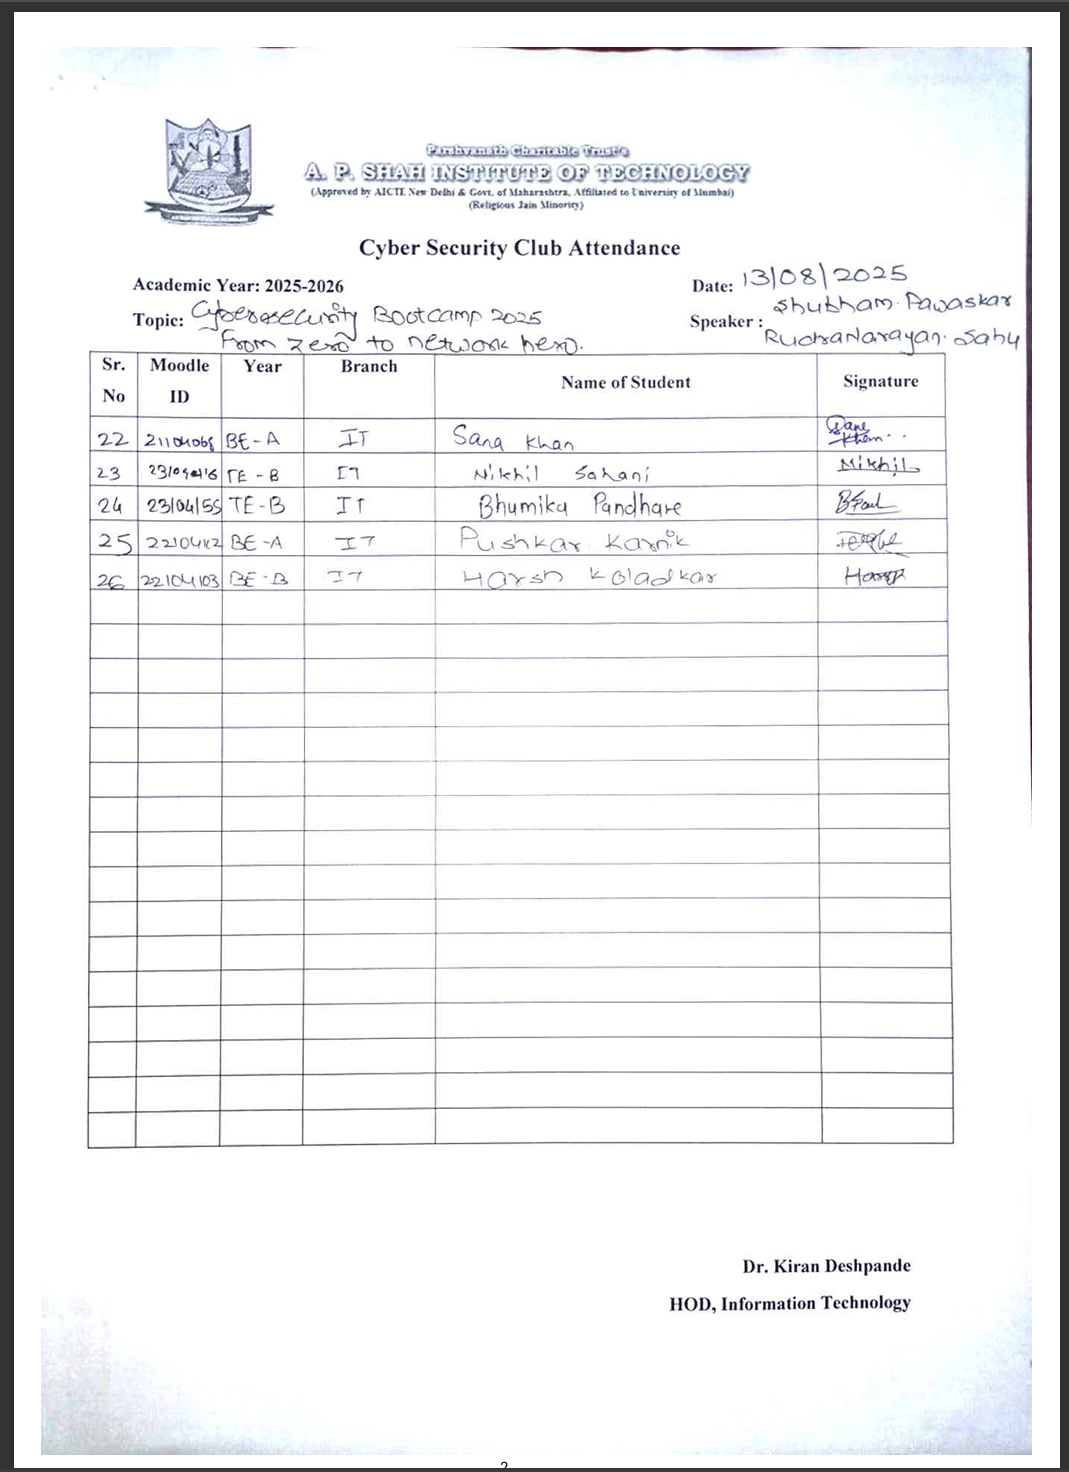 Parshvanath Charitable Trust's
A. P. SHAH INSTITUTE OF TECHNOLOGY
(Approved by AICTE New Delhi & Govt. of Maharashtra, Affiliated to University of Mumbai)
(Religious Jain Minority)
Cyber Security Club Attendance
Academic Year: 2025-2026 Date: 13/08/2025
Topic: Cybersecurity Bootcamp 2025 Speaker : Shubham. Pawaskar
From zero to network hero. Rudranarayan. Sahu
Sr. No Moodle ID Year Branch Name of Student Signature
22 21104068 BE-A IT Sana Khan Sana Khan
23 TE-B IT Nikhil Sahani Nikhil
24 23104155 TE-B IT Bhumika Pandhare
25 BE-A IT Pushkar Karnik
26 22104103 BE-B IT Harsh Koladkar
Dr. Kiran Deshpande
HOD, Information Technology
2